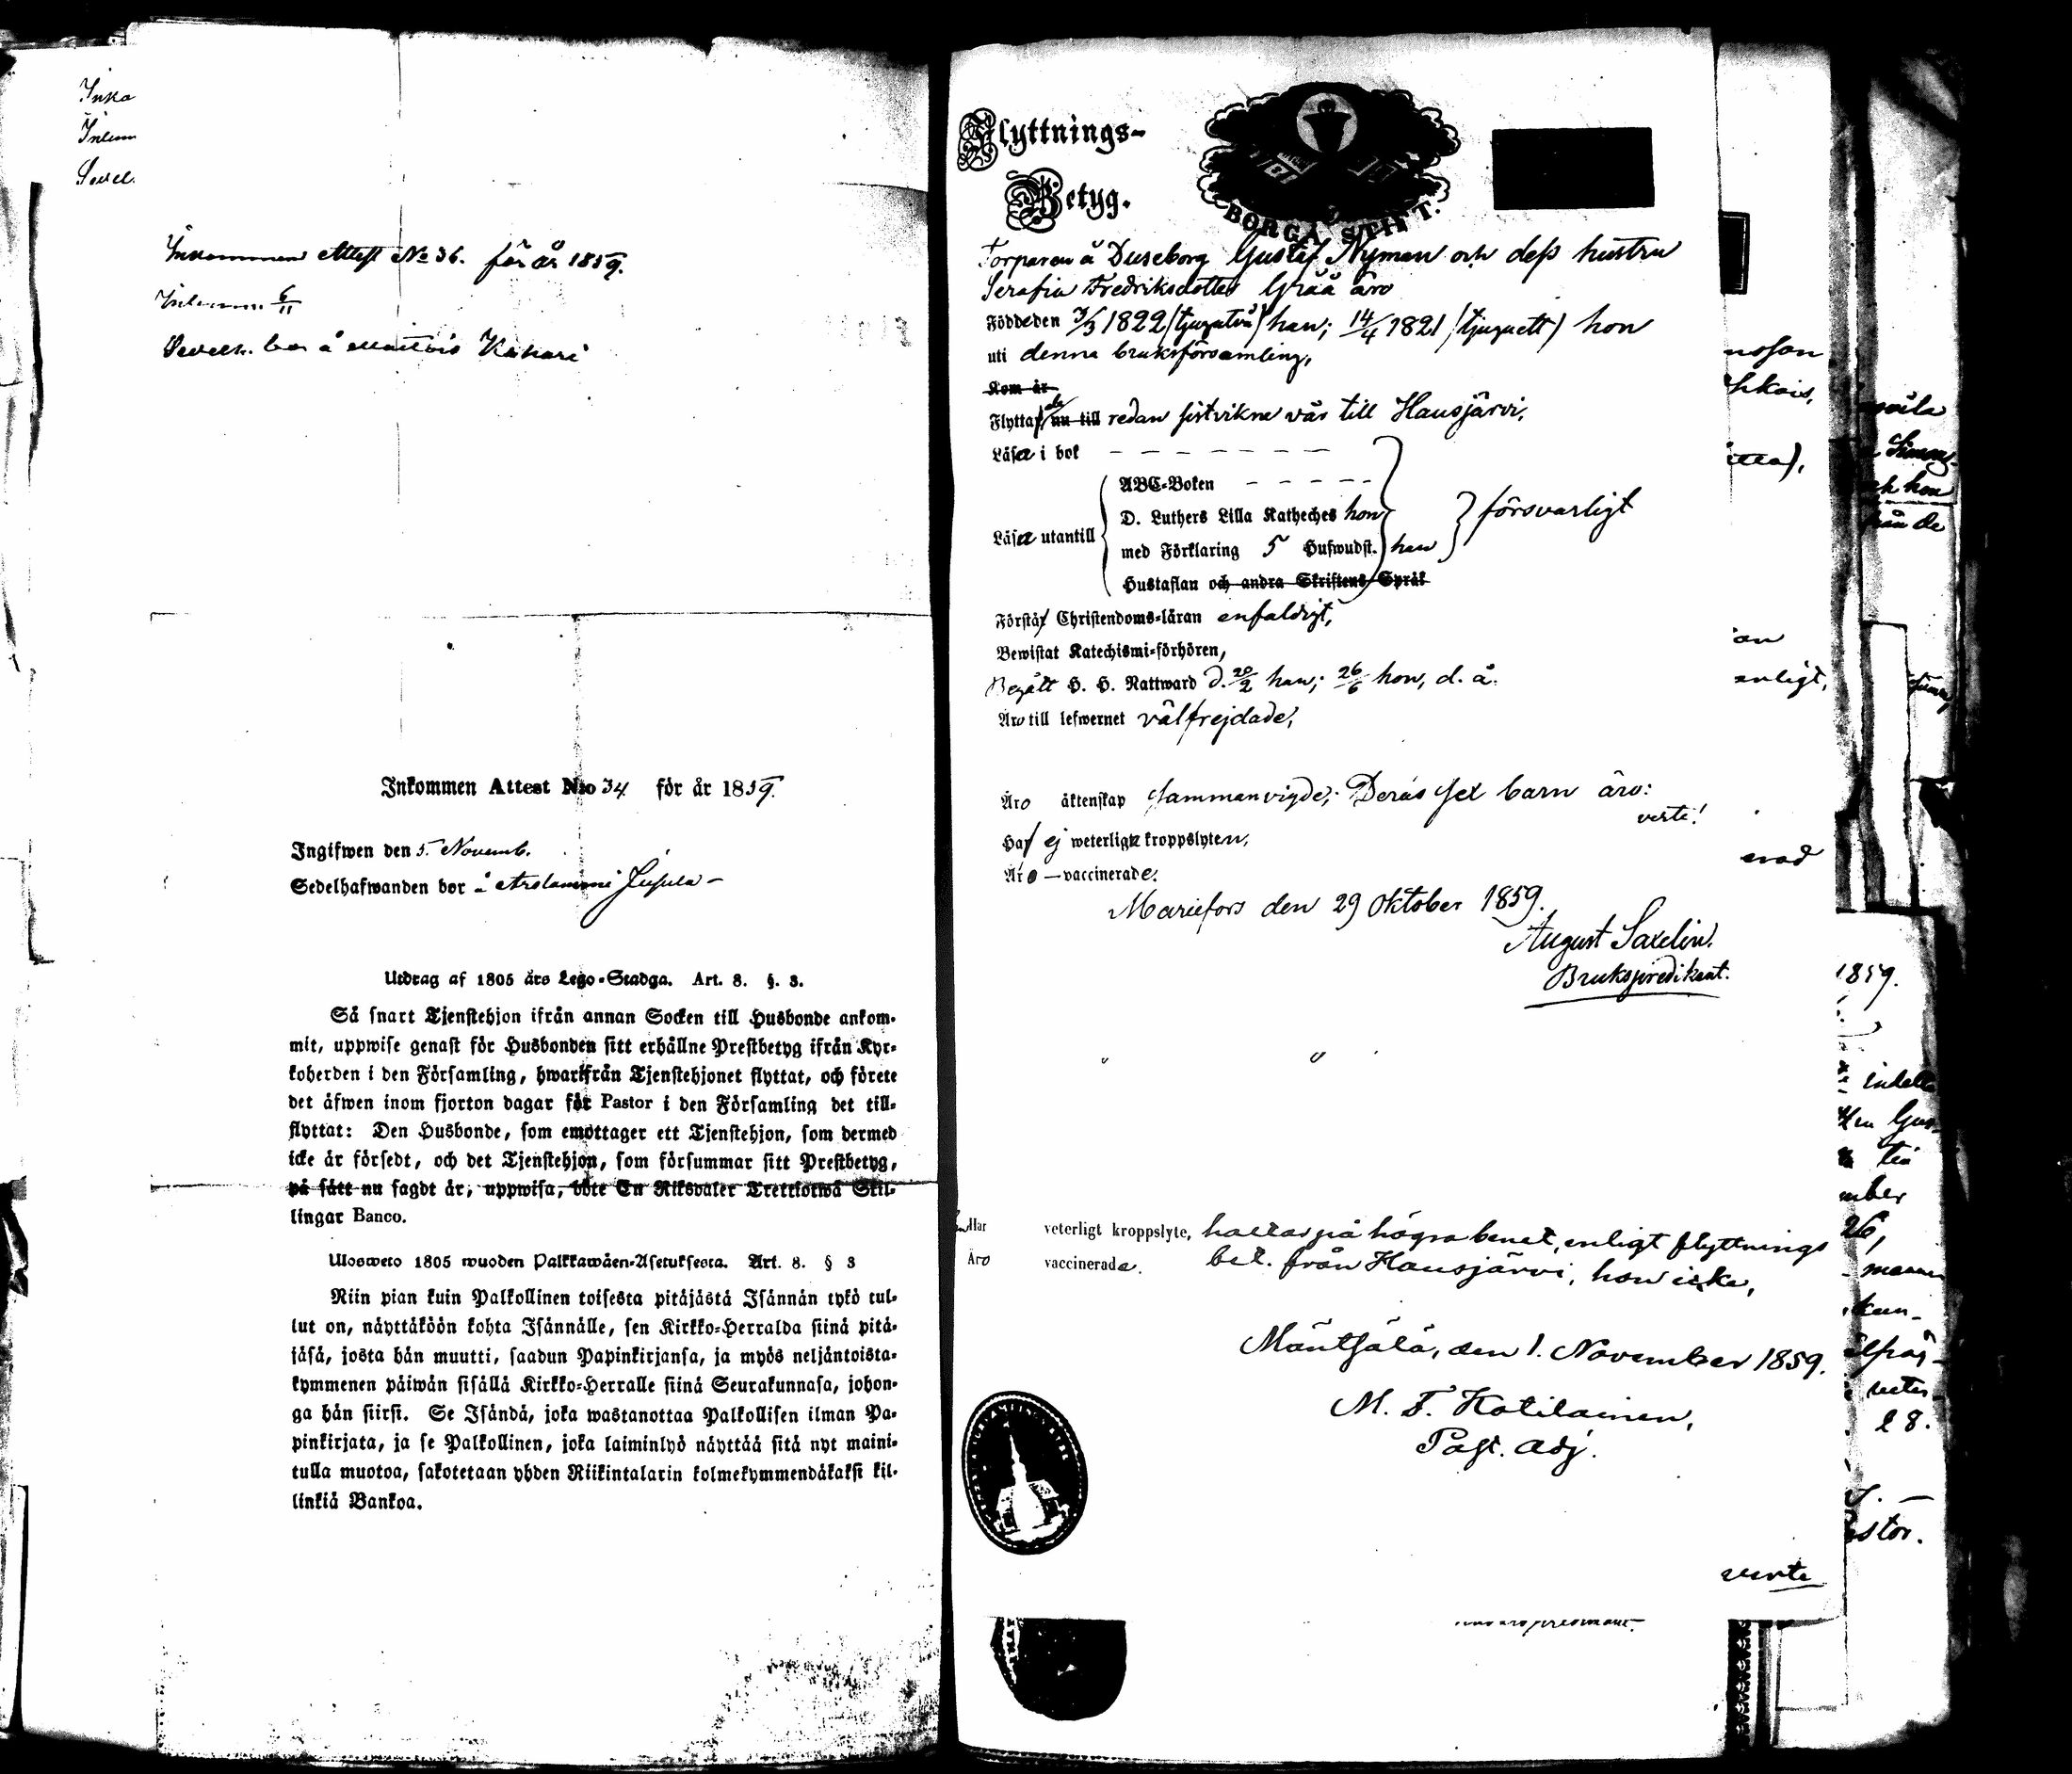 Inko
Inlem
Sedel.
Inkommen Attest No 36. för år 1859.
Inlemn. 6/11
Sedelh. bor å
Inkommen Attest Nro 34 för år 1859.
Ingifwen den 5 Novemb.
Sedelhafwanden bor å Arolammi
Utdrag af 1805 års Lego-Stadga. Art. 8. §. 3.
Så snart Tjenstehjon ifrån annan Socken till Husbonde ankom-
mit, uppwise genast för Husbonden sitt erhållne Prestbetyg ifrån Kyr-
koherden i den Församling, hwarifrån Tjenstehjonet flyttat, och förete
det äfwen inom fjorton dagar för Pastor i den Församling det till-
flyttat: Den Husbonde, som emottager ett Tjenstehjon, som dermed
icke är försedt, och det Tjenstehjon, som försummar sitt Prestbetyg,
på sätt nu sagdt är, uppwisa, böte En Riksdaler Trettiotwå Skil-
lingar Banco.
Ulosweto 1805 wuoden Palkkawäen-Asetuksesta. Art. 8. § 3
Niin pian kuin Palkollinen toisesta pitäjästä Isännän tykö tul-
lut on, näyttäköön kohta Isännälle, sen Kirkko-Herralda siinä pitä-
jäsä, josta hän muutti, saadun Papinkirjansa, ja myös neljäntoista-
kymmenen päiwän sisällä Kirkko-Herralle siinä Seurakunnasa, johon-
ga hän siirsi. Se Isändä, joka wastanottaa Palkollisen ilman Pa-
pinkirjata, ja se Palkollinen, joka laiminlyö näyttää sitä nyt maini-
tulla muotoa, sakotetaan yhden Riikintalarin kolmekymmendäkaksi kil-
linkiä Bankoa.
Flyttnings-
Betyg.
BORGÅ STIFT.
Torparen å Duseborg Gustaf Nyman och dess hustru
Serafia Fredriksdotter Grää äro
Födde den 3/3 1822 (tjugutvå) han; 14/4 1821 (tjuguett) hon
uti denna bruksförsamling,
Kom år
Flytta nu till redan sistvikne vår till Hausjärvi,
Läsa i bok
ABC-Boken
D. Luthers Lilla Katheches hon
Läsa utantill
med Förklaring 5 Hufwudst. han
försvarligt
Hustaflan och andra Skriftens Språk
Förstå Christendoms-läran enfaldigt,
Bewistat Katechismi-förhören,
Begått H. H. Nattward d. 20/2 han; 26/6 hon, d. å.
Äro till lefwernet välfrejdade,
Äro äktenskap sammanvigde; Deras sex barn äro:
verte!
Ha ej weterligt kroppslyten,
Äro — vaccinerade.
Mariefors den 29 Oktober 1859.
August Saxelin.
Brukspredikant.
Har veterligt kroppslyte, haltar på högra benet, enligt flyttnings
Äro vaccinerade. bet. från Hausjärvi, hon icke,
Mäntsälä, den 1. November 1859.
M. F. Kotilainen,
Past. adj.
verte
1859.